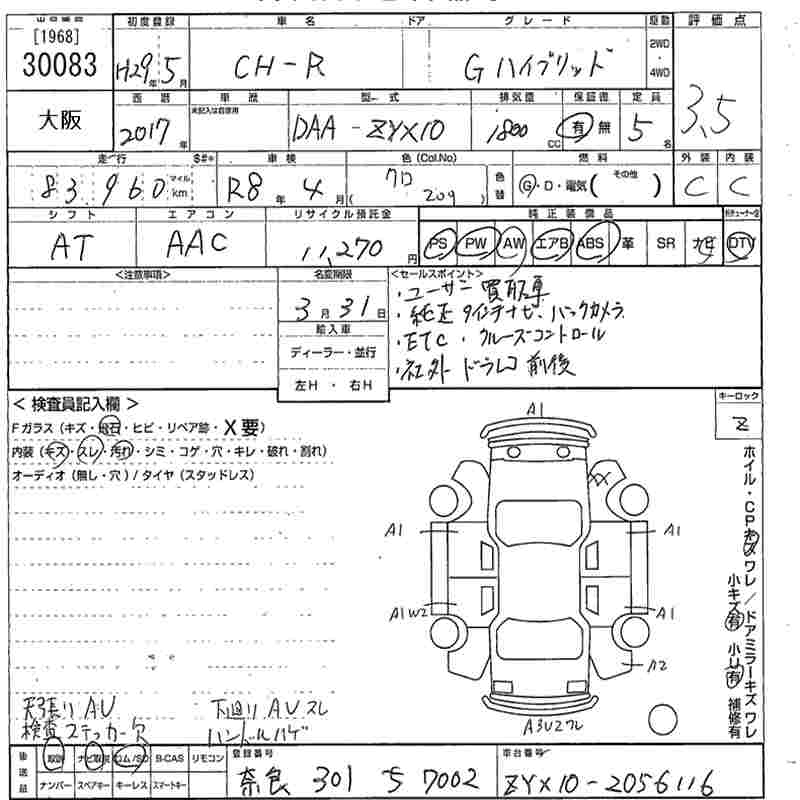 [1968]
30083
初度登録 車名 ドア グレード 駆動 評価点
H29年 5月 CH-R G ハイブリッド 2WD・4WD 3.5
大阪
西暦 車歴 型式 排気量 保証書 定員
未記入は自家用
2017年 DAA-ZYX10 1800cc 有 無 5名
走行 S#* 車検 色(Col.No) 燃料 外装 内装
83960 マイル km R8年 4月 クロ ( 209 ) 色替 G・D・電気( その他 ) C C
シフト エアコン リサイクル預託金 純正装備品
AT AAC 11,270円 PS PW AW エアB ABS 革 SR ナビ DTV
<注意事項> 名変期限 <セールスポイント>
3月31日
・ユーザー買取車
・純正9インチナビ・バックカメラ
・ETC・クルーズコントロール
・社外ドラレコ前後
輸入車
ディーラー・並行
左H・右H
<検査員記入欄>
キーロック
Z
Fガラス (キズ・飛石・ヒビ・リペア跡・X要)
内装 (キズ・スレ・汚れ・シミ・コゲ・穴・キレ・破れ・割れ)
オーディオ (無し・穴) / タイヤ (スタッドレス)
A1
XX
A1 A1
A1W2 A1
A2
A3U2ワレ
ホイル・CPキズワレ/ドアミラーキズワレ
小キズ有 小U有 補修有
天張り AU 下廻り AU スレ
検査ステッカー欠 ハンドルハゲ
後送品 取説 ナビ取説 ロム/SD B-CAS リモコン
ナンバー スペアキー キーレス スマートキー
登録番号 車台番号
奈良 301 ち 7002 ZYX10-2056116